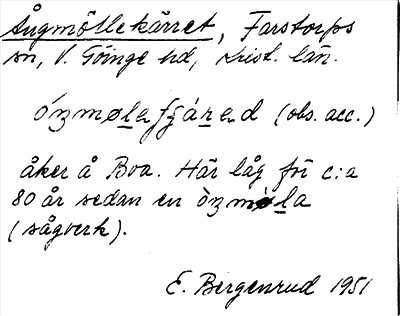 Ångmöllekärret, Farstorps
sn, V. Göinge hd, Krist. län.
ónzmølafʒárad (obs. acc.)
åker å Boa. Här låg för c:a
80 år sedan en ònzmøla
(sågverk).
E. Bergenrud 1951